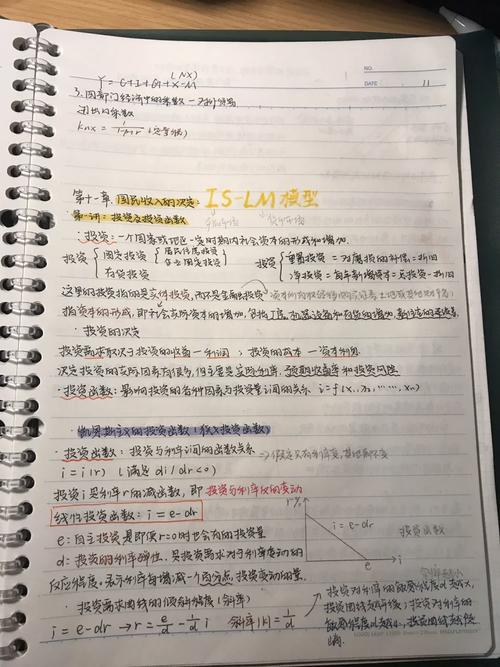 NO.
DATE 11
(NX)
Y = C+I+G+X-M
3. 四部门经济中的乘数 — 对外贸易
第十一章 国民收入的决定: IS-LM模型
第一讲: 投资及投资函数
· 投资: 一个国家或地区一定时期内社会资本的形成和增加.
投资 { 固定投资 { 居民住房投资 企业固定投资
存货投资
投资 { 重置投资 = 对磨损的补偿 = 折旧
净投资 = 每年新增资本 = 总投资 - 折旧
这里的投资指的是实体投资, 而不是金融投资
指资本的形成, 即社会实际资本的增加, 包括厂房、机器设备和存货的增加, 新住宅的建造等
· 投资的决定
投资需求取决于投资的收益 — 利润; 投资的成本 — 资本利息.
决定投资的实际因素有很多, 但主要是实际利率、预期收益率和投资风险
· 投资函数: 影响投资的各种因素与投资量之间的关系. i=f(x₁,x₂,……,xₙ)
· 凯恩斯主义的投资函数 (狭义投资函数)
· 投资函数: 投资与利率之间的函数关系
i = i(r) (满足 di/dr<0)
投资i是利率r的减函数, 即投资与利率反向变动
线性投资函数: i = e-dr
r%
i = e-dr
投资函数
e: 自主投资 是即使r=0时也会有的投资量
e
i
d: 投资的利率弹性, 是投资需求对于利率变动的
反应程度. 表示利率每增减一个百分点, 投资变动的量.
· 投资需求曲线的倾斜程度 (斜率)
i = e-dr → r = e/d - 1/d i 斜率|k| = 1/d
投资对利率的敏感程度d越大,
投资曲线越平缓; 投资对利率的
敏感程度d越小, 投资曲线越陡
峭.